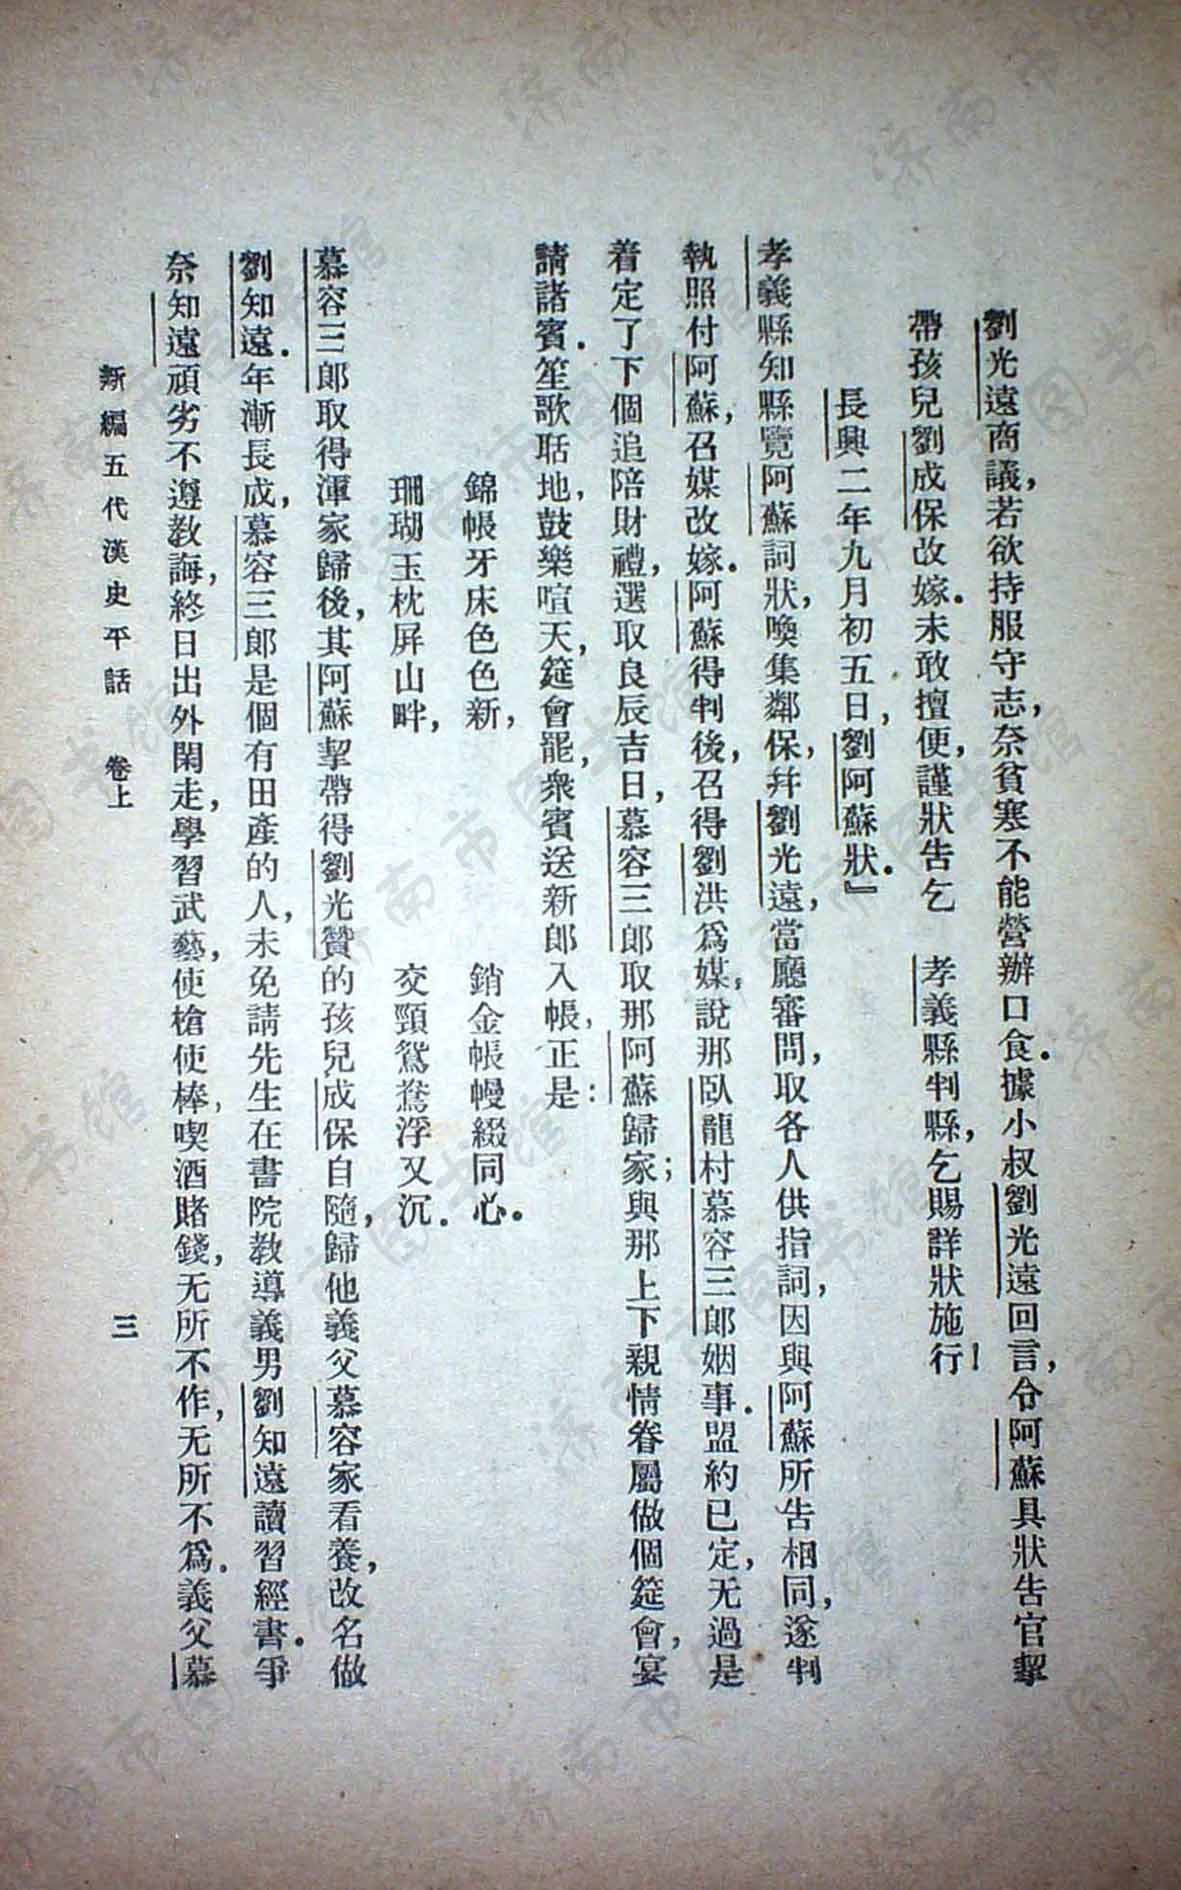 劉光遠商議,若欲持服守志,奈貧寒不能營辦口食.據小叔劉光遠回言,令阿蘇具狀告官,挈
帶孩兒劉成保改嫁.未敢擅便,謹狀告乞　孝義縣判縣,乞賜詳狀施行!
長興二年九月初五日,劉阿蘇狀.』
孝義縣知縣覽阿蘇詞狀,喚集鄰保,幷劉光遠,當廳審問,取各人供指詞,因與阿蘇所告相同,遂判
執照付阿蘇,召媒改嫁.阿蘇得判後,召得劉洪爲媒,說那臥龍村慕容三郎姻事.盟約已定,无過是
着定了下個追陪財禮,選取良辰吉日,慕容三郎取那阿蘇歸家;與那上下親情眷屬做個筵會,宴
請諸賓.笙歌聒地,鼓樂喧天,筵會罷,衆賓送新郎入帳,正是:
錦帳牙床色色新,　銷金帳幔綴同心.
珊瑚玉枕屏山畔,　交頸鴛鴦浮又沉.
慕容三郎取得渾家歸後,其阿蘇挈帶得劉光贊的孩兒成保自隨,歸他義父慕容家看養,改名做
劉知遠.年漸長成,慕容三郎是個有田產的人,未免請先生在書院教導義男劉知遠讀習經書.爭
奈知遠頑劣不遵教誨,終日出外閑走,學習武藝,使槍使棒,喫酒賭錢,无所不作,无所不爲.義父慕
新編五代漢史平話　卷上　三